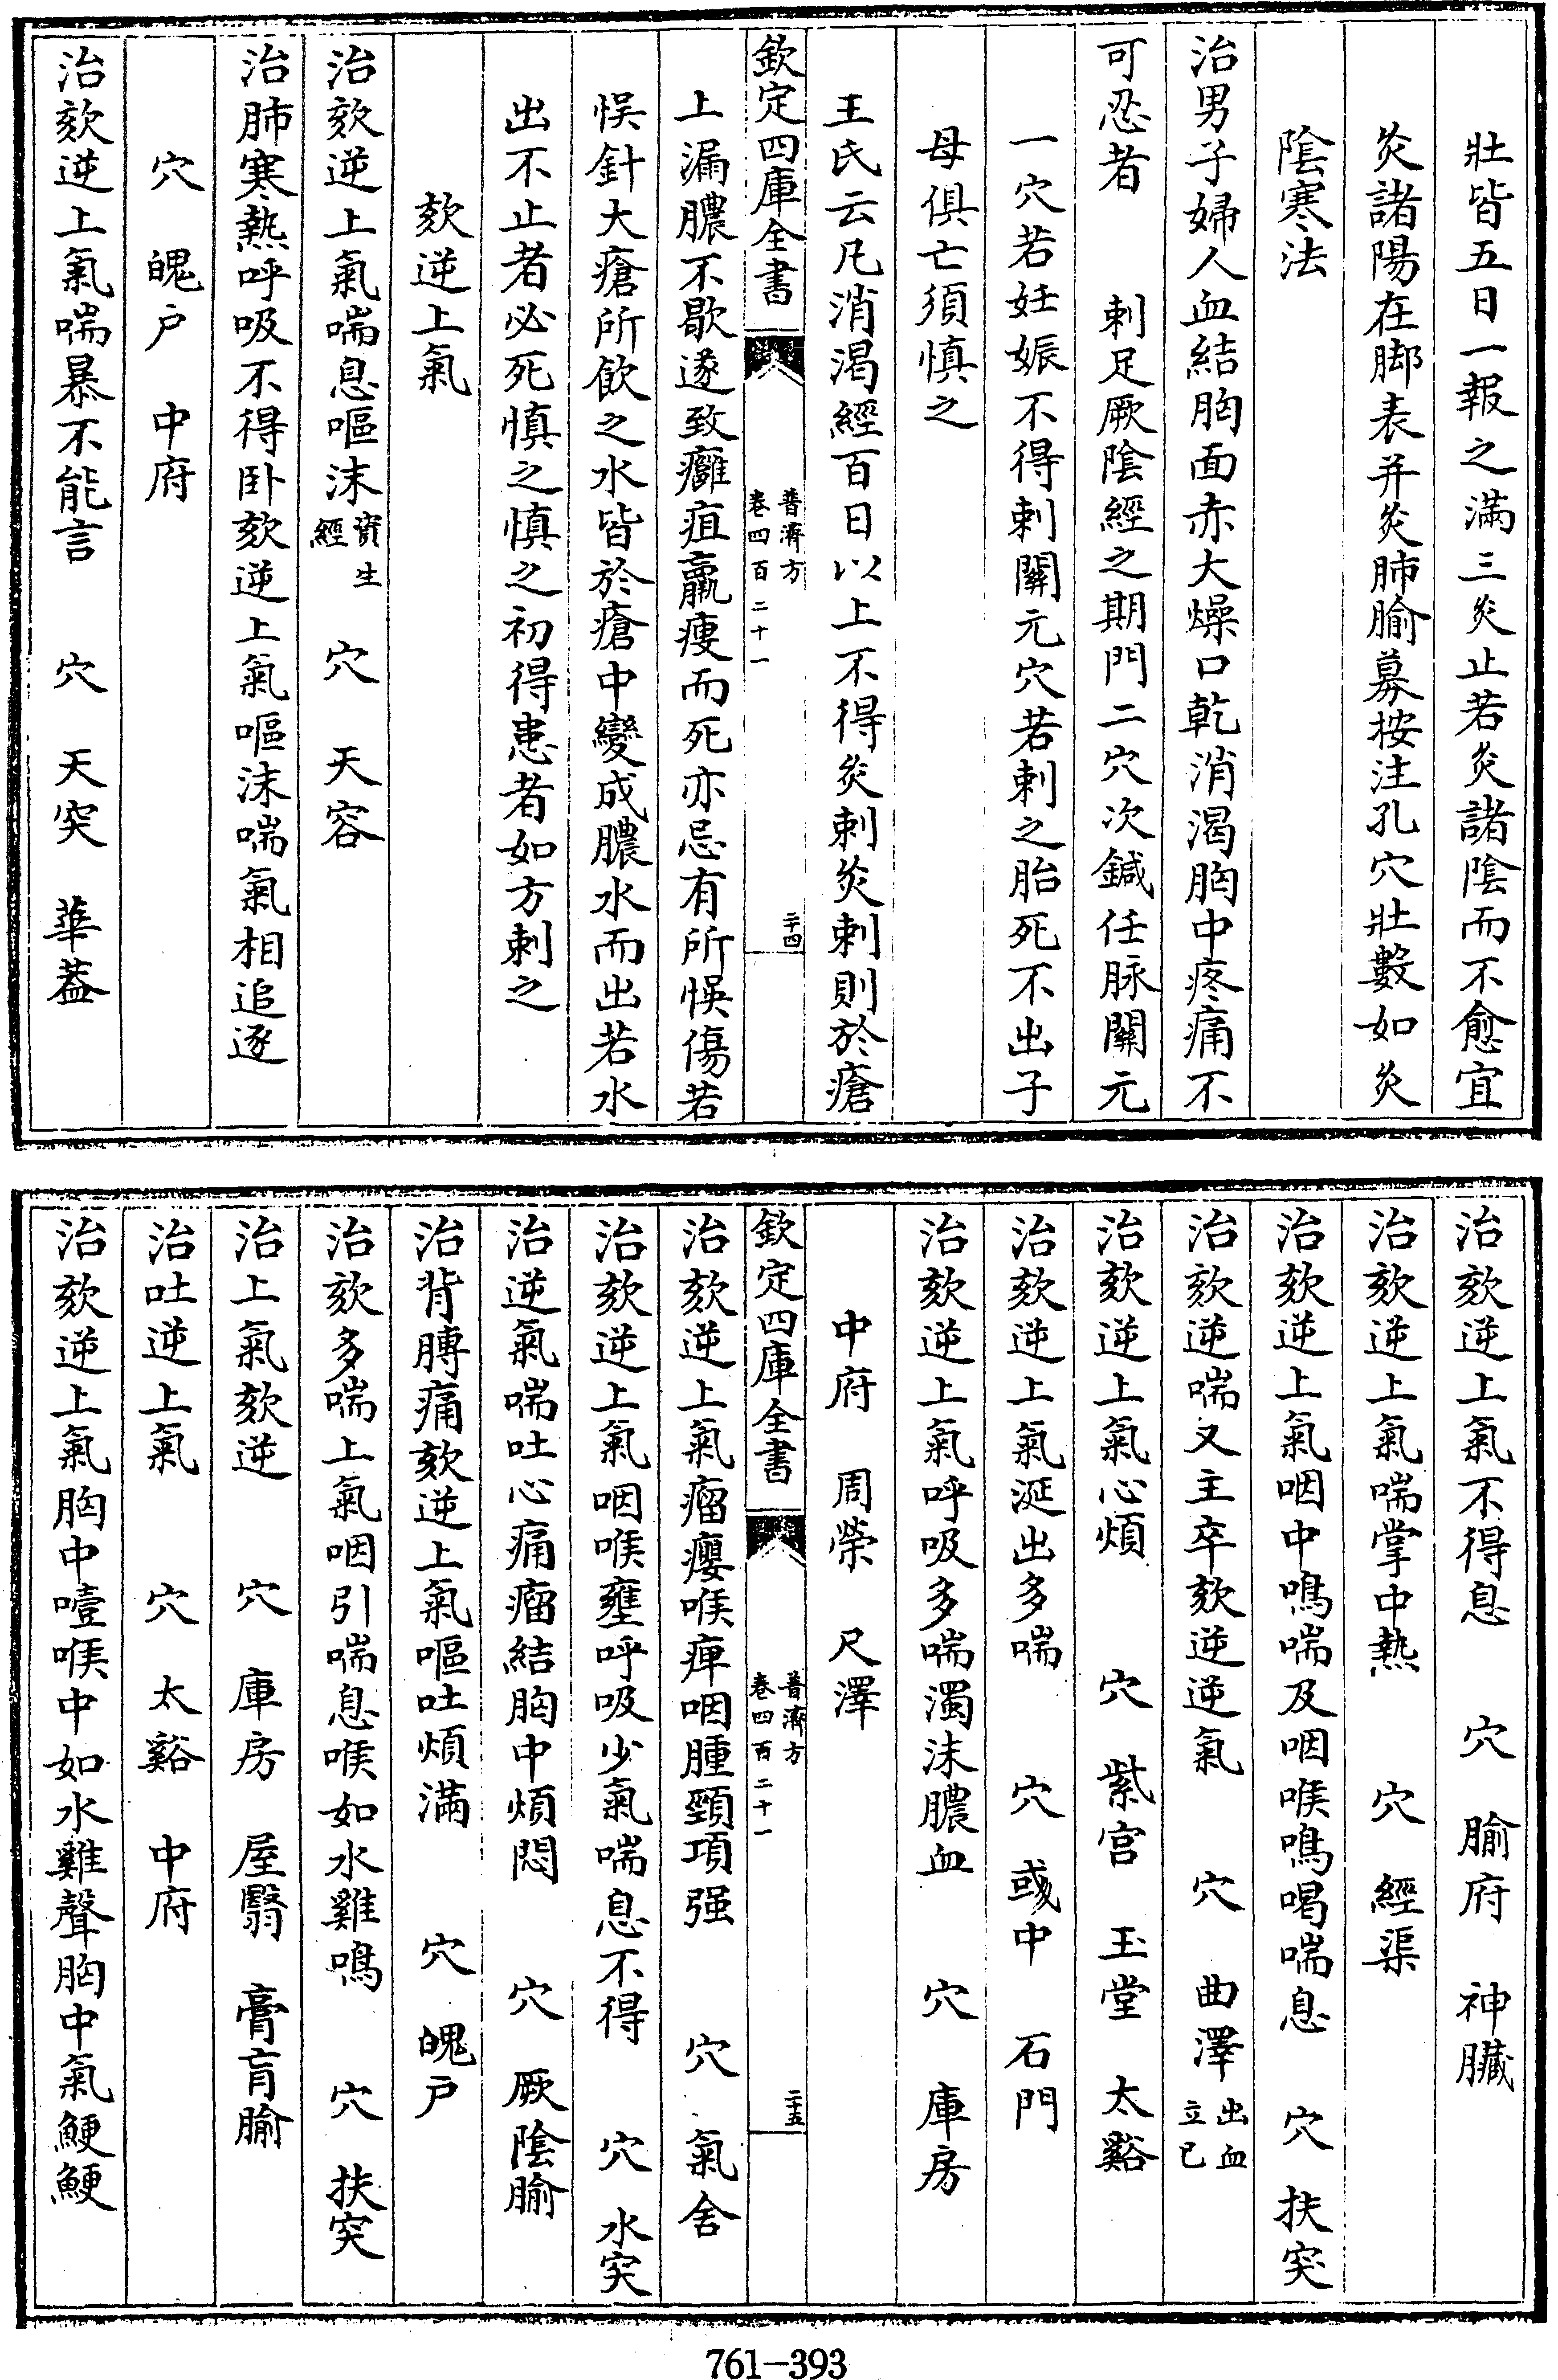 壯皆五日一報之滿三灸止若灸諸陰而不愈宜
灸諸陽在脚表并灸肺腧募按注孔穴壯數如灸
陰寒法
治男子婦人血結胸面赤大燥口乾消渴胸中疼痛不
可忍者　刺足厥陰經之期門二穴次鍼任脉關元
一穴若妊娠不得刺關元穴若刺之胎死不出子
母俱亡須慎之
王氏云凡消渴經百日以上不得灸刺灸刺則於瘡
欽定四庫全書
普濟方
卷四百二十一
二十四
上漏膿不歇遂致癰疽羸瘦而死亦忌有所悞傷若
悞針大瘡所飲之水皆於瘡中變成膿水而出若水
出不止者必死慎之慎之初得患者如方刺之
欬逆上氣
治欬逆上氣喘息嘔沫資生經　穴　天容
治肺寒熱呼吸不得卧欬逆上氣嘔沫喘氣相追逐
穴　魄户　中府
治欬逆上氣喘暴不能言　穴　天突　華葢
治欬逆上氣不得息　穴　腧府　神臟
治欬逆上氣喘掌中熱　穴　經渠
治欬逆上氣咽中鳴喘及咽喉鳴喝喘息　穴　扶突
治欬逆喘又主卒欬逆逆氣　穴　曲澤出血立已
治欬逆上氣心煩　穴　紫宫　玉堂　太谿
治欬逆上氣涎出多喘　穴　彧中　石門
治欬逆上氣呼吸多喘濁沫膿血　穴　庫房
中府　周榮　尺澤
欽定四庫全書
普濟方
卷四百二十一
二十五
治欬逆上氣瘤癭喉痺咽腫頸項强　穴　氣舍
治欬逆上氣咽喉壅呼吸少氣喘息不得　穴　水突
治逆氣喘吐心痛瘤結胸中煩悶　穴　厥陰腧
治背膊痛欬逆上氣嘔吐煩滿　穴　魄户
治欬多喘上氣咽引喘息喉如水雞鳴　穴　扶突
治上氣欬逆　穴　庫房　屋翳　膏肓腧
治吐逆上氣　穴　太谿　中府
治欬逆上氣胸中噎喉中如水雞聲胸中氣鯁鯁
761-393